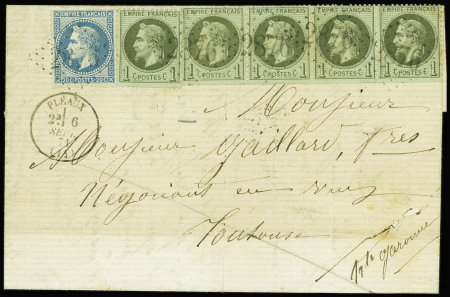 EMPIRE FRANÇAIS EMPIRE FRANÇAIS EMPIRE FRANÇAIS EMPIRE FRANÇAIS EMPIRE FRANÇAIS EMPIRE FRANÇAIS
20C POSTES 20C 1 POSTES C 1 1 POSTES C 1 1 POSTES C 1 1 POSTES C 1 1 POSTES C 1
PLEAUX
2E 6
SEPT
71
(14)
Monsieur
Monsieur Gaillard, frès
Négociant en vins
Toulouse
Hte garonne